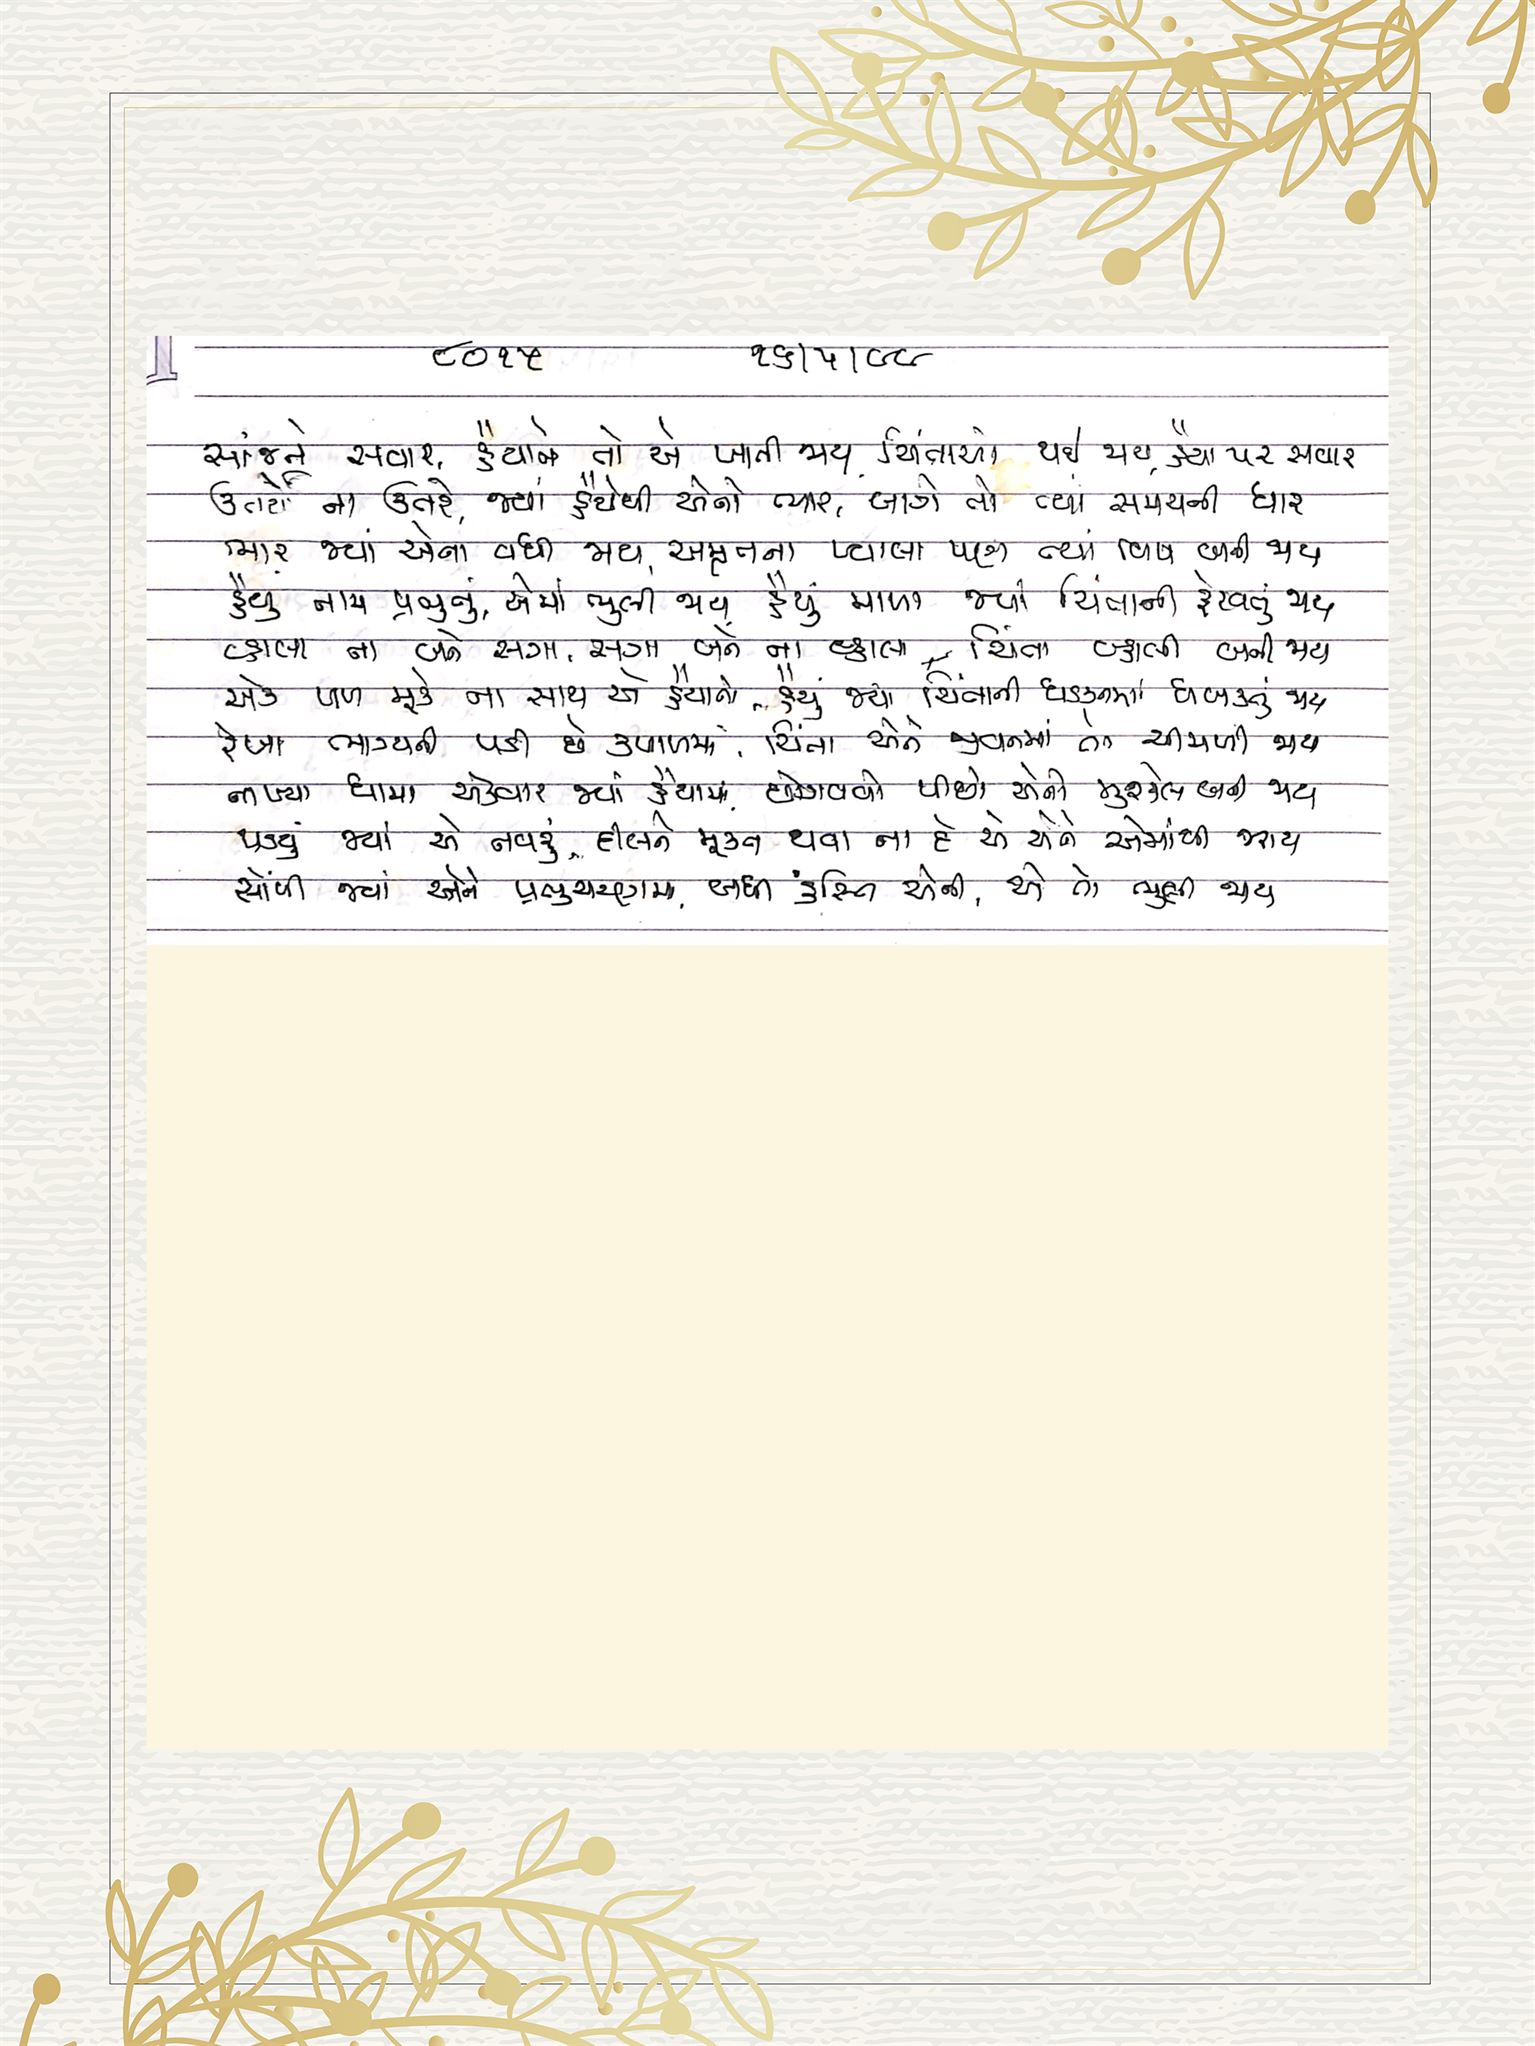 ૮૦૧૫ ૧૬/૫/૯૯
સાંજને સવાર, હૈયાને તો એ ખાતી જાય, ચિંતાઓ થઈ જાય, હૈયા પર સવાર
ઉતરી ના ઉતરે, જ્યાં હૈયેથી એનો ભાર, લાગે તો ત્યાં સમયની ધાર
ભાર જ્યાં એના વધી જાય, અમૃતના પ્યાલા પણ ત્યાં વિષ બની જાય
હૈયું નામ પ્રભુનું, એમાં ભુલી જાય, હૈયું માળા જ્યાં ચિંતાની ફેરવતું જાય
વ્હાલા ના બને સગા, સગા બને ના વ્હાલા, ચિંતા વ્હાલી બની જાય
એક પળ મૂકે ના સાથ એ હૈયાનો, હૈયું જ્યાં ચિંતાની ધડકનમાં ધબકતું જાય
રેખા ભાગ્યની પડી છે કપાળમાં, ચિંતા એને જીવનમાં તો ચીમળી જાય
નાખ્યા ધામા એકવાર જ્યાં હૈયામાં, છોડાવવો પીછો એનો મુશ્કેલ બની જાય
પડયું જ્યાં એ નવરું, દીલને મૂક્ત થવા ના દે એ એને એમાંથી જરાય
સોંપી જ્યાં એને પ્રભુચરણમાં, બધી કુસ્તિ એની, એ તો ભુલી જાય